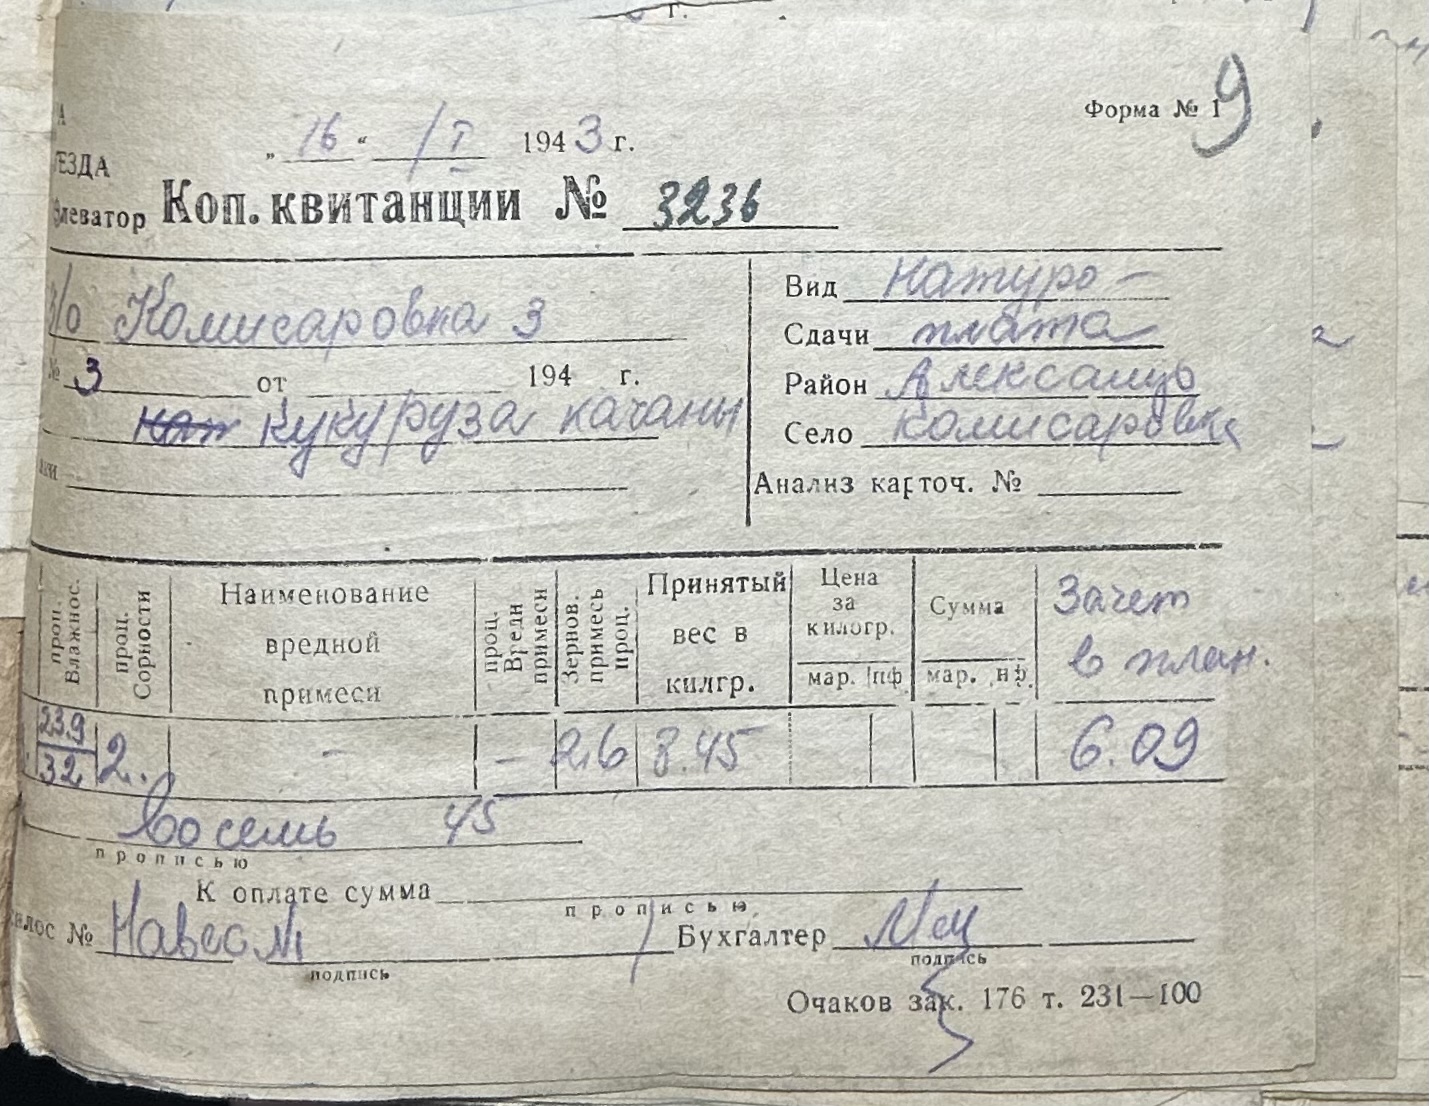 г.
Форма № 1
9
А
ЕЗДА
„ 16 “ /I 1943 г.
Элеватор Коп. квитанции № 3236
з/о Комисаровка 3
№ 3 от 194 г.
кат кукуруза качаны
Вид натуро-
Сдачи плата
Район Александр
Село Комисаровка
Анализ карточ. №
проц. Влажнос.
проц. Сорности
Наименование вредной примеси
проц. Вредн примеси
Зернов. примесь проц.
Принятый вес в килгр.
Цена за килогр.
мар. пф.
Сумма
мар. пф.
Зачет в план.
23.9
32 2. — — 2,6 8.45 6.09
восемь 45
прописью
К оплате сумма
прописью
илос № Навес №1 Бухгалтер
подпись
подпись
Очаков зак. 176 т. 231—100